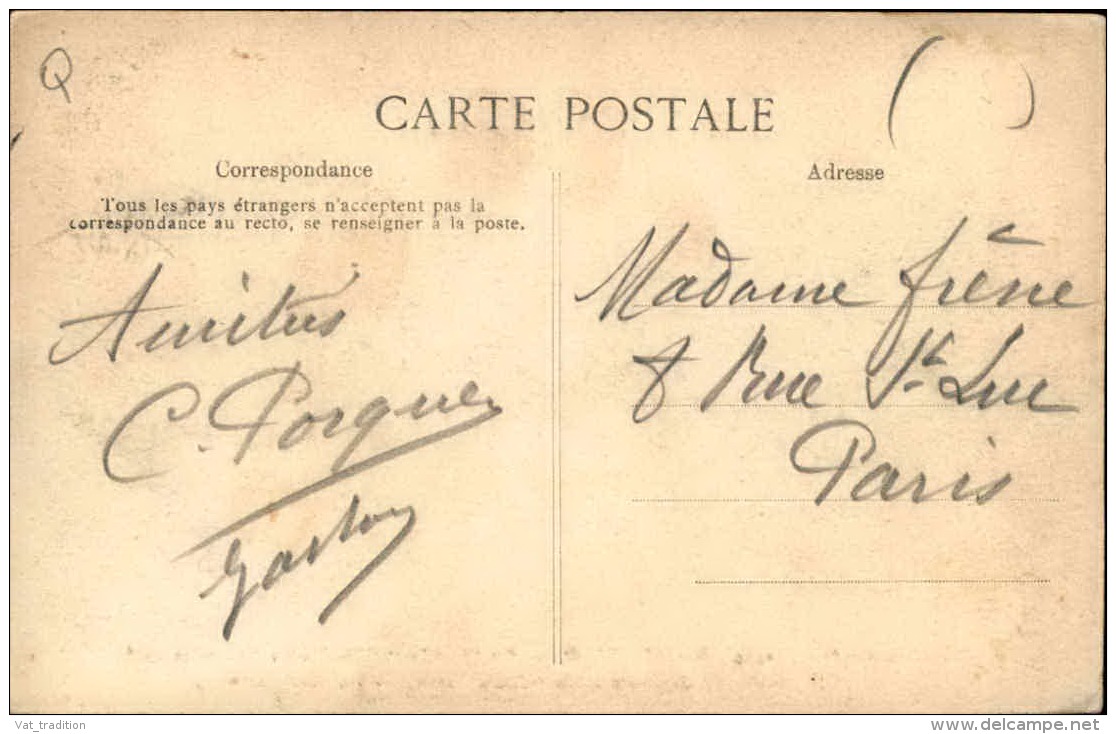 Q
CARTE POSTALE
Correspondance
Tous les pays étrangers n'acceptent pas la
correspondance au recto, se renseigner à la poste.
Amitiés
C. Porquer
Gaston
Adresse
Madame Frêne
8 Rue St Luc
Paris
Vat_tradition
www.delcampe.net